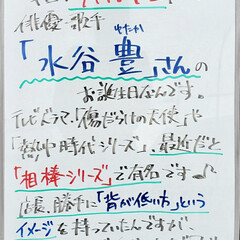 俳優・歌手
ゆたか
「水谷 豊」さんの
お誕生日なんです。
テレビドラマ、「傷だらけの天使」や
「熱中時代シリーズ」、最近だと
「相棒シリーズ」で有名です♪
店長、勝手に「背が低い方」という
イメージを持っていたんですが、